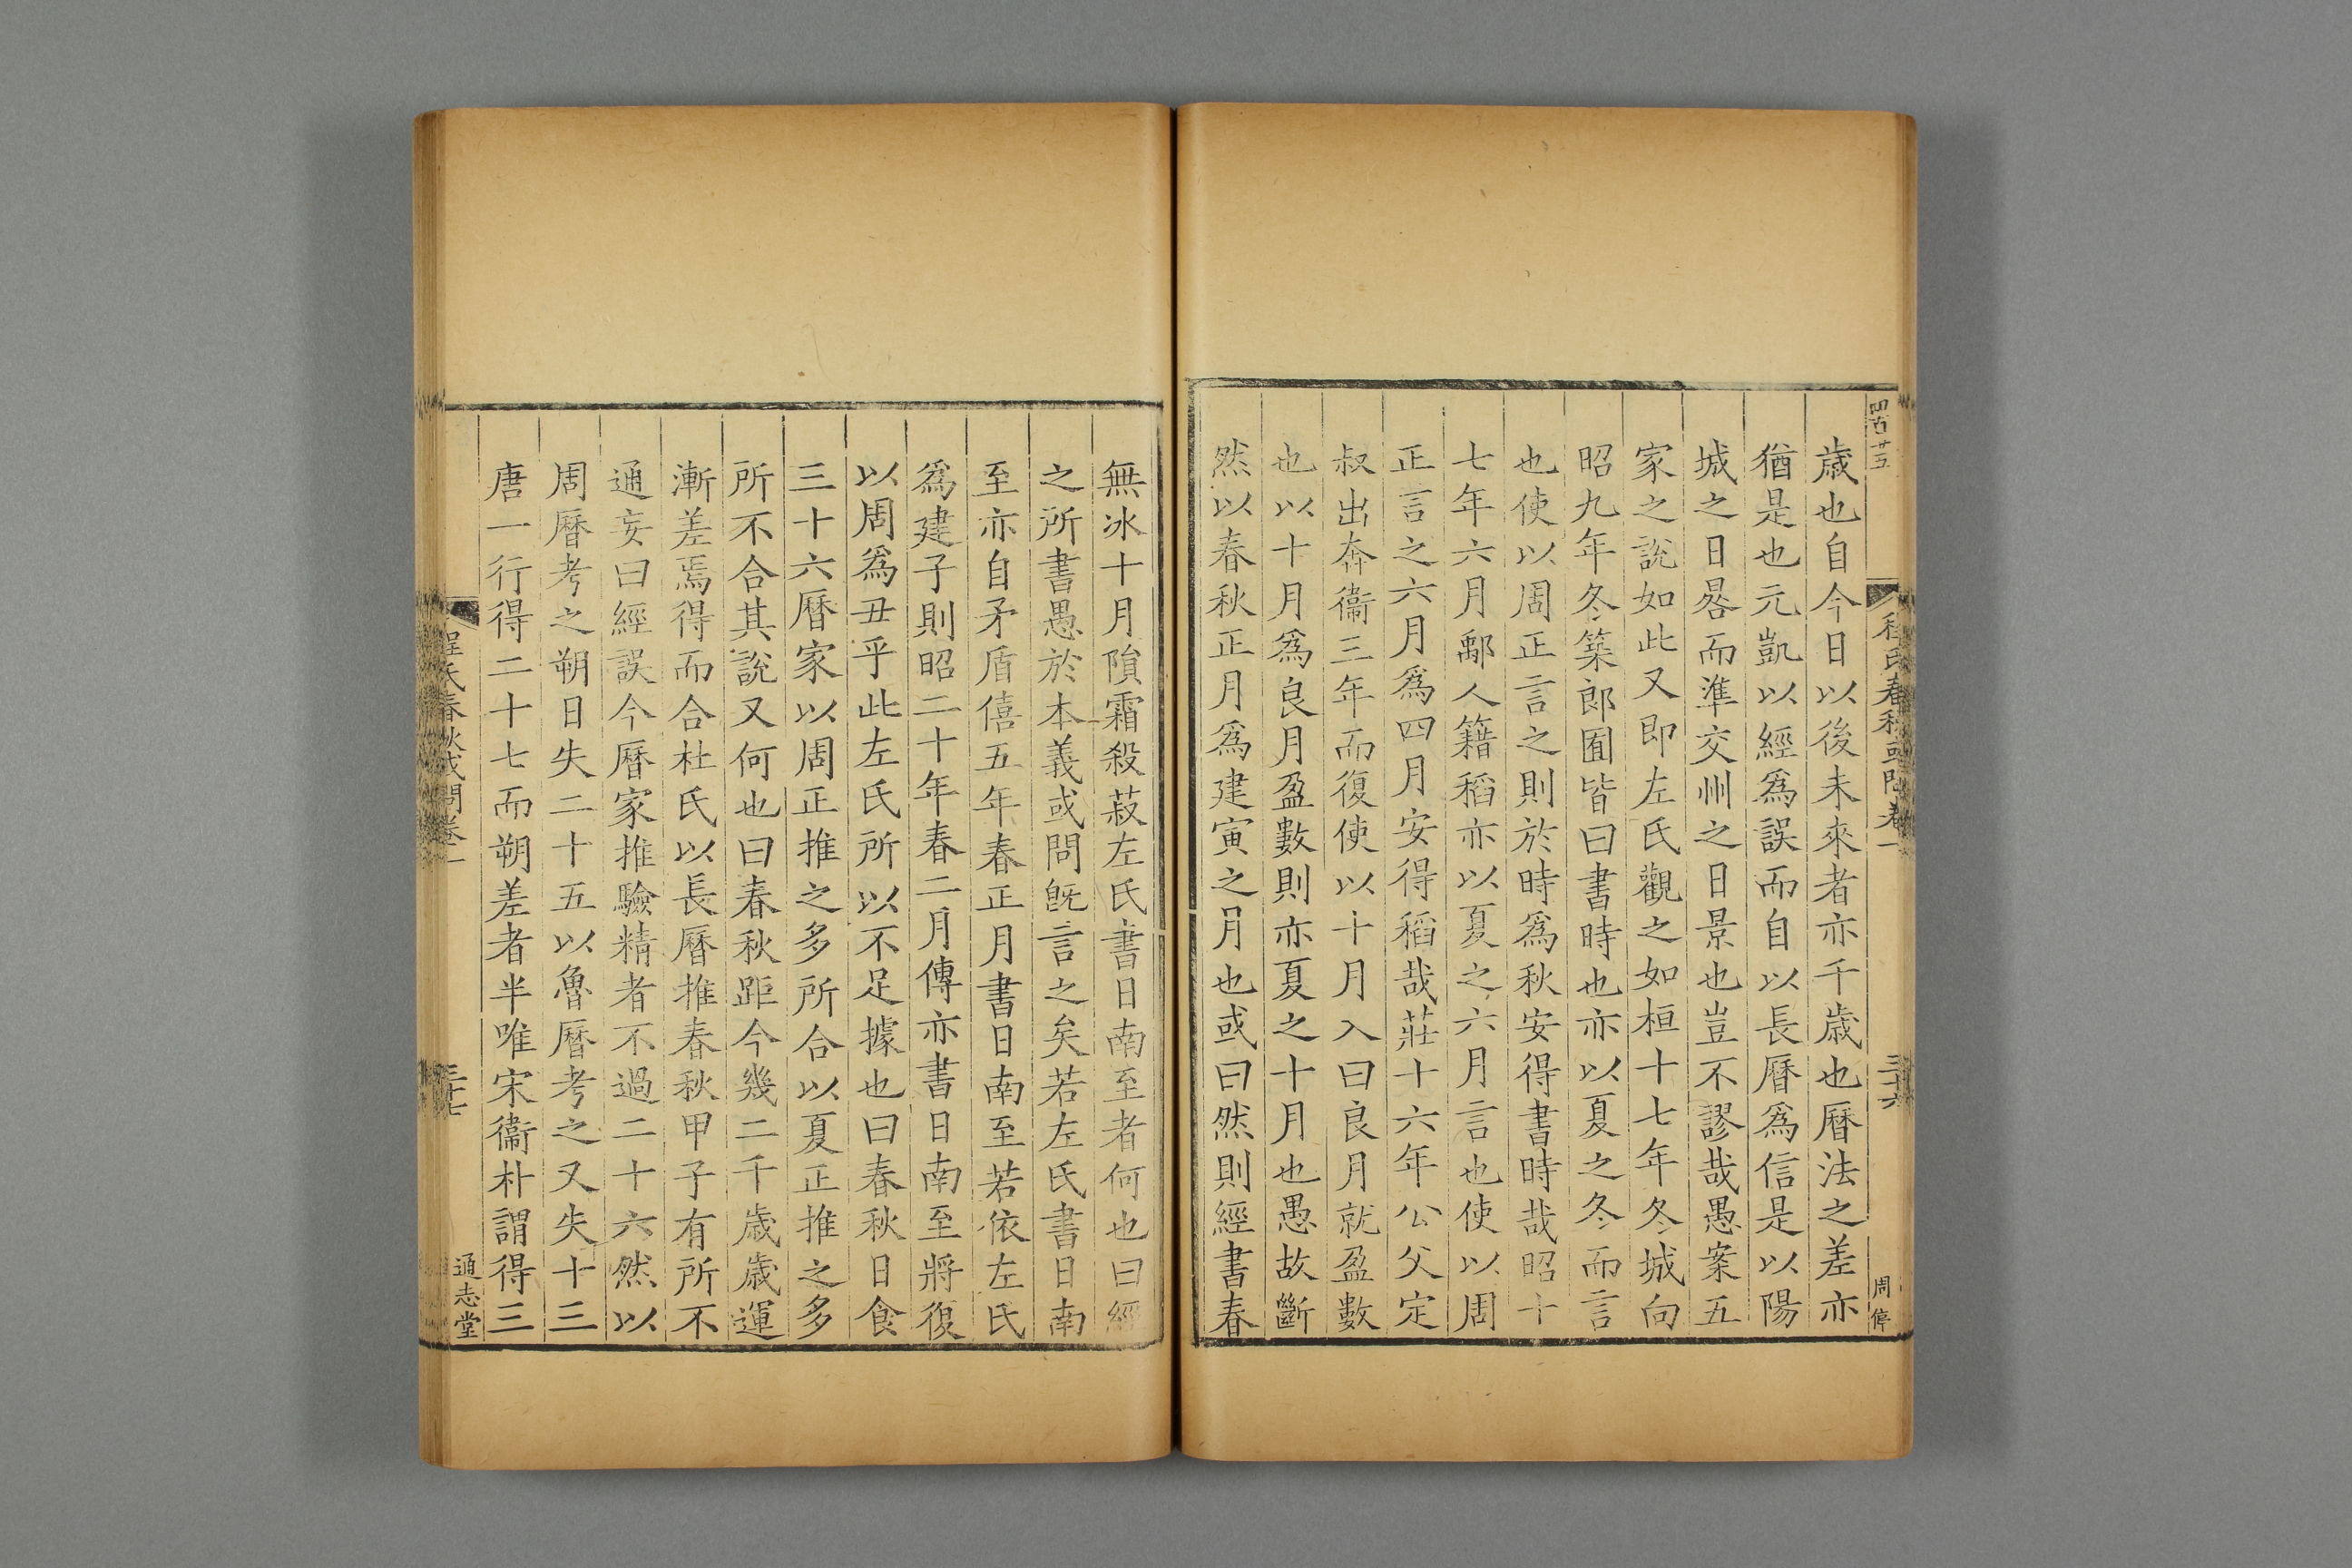 四百廿五
程氏春秋或問卷一
三十六
周偉
歲也自今日以後未來者亦千歲也曆法之差亦
猶是也元凱以經爲誤而自以長曆爲信是以陽
城之日晷而準交州之日景也豈不謬哉愚案五
家之說如此又即左氏觀之如桓十七年冬城向
昭九年冬築郎囿皆曰書時也亦以夏之冬而言
也使以周正言之則於時爲秋安得書時哉昭十
七年六月鄅人籍稻亦以夏之六月言也使以周
正言之六月爲四月安得稻哉莊十六年公父定
叔出奔衞三年而復使以十月入曰良月就盈數
也以十月爲良月盈數則亦夏之十月也愚故斷
然以春秋正月爲建寅之月也或曰然則經書春
無冰十月隕霜殺菽左氏書日南至者何也曰經
之所書愚於本義或問旣言之矣若左氏書日南
至亦自矛盾僖五年春正月書日南至若依左氏
爲建子則昭二十年春二月傳亦書日南至將復
以周爲丑乎此左氏所以不足據也曰春秋日食
三十六曆家以周正推之多所合以夏正推之多
所不合其說又何也曰春秋距今幾二千歲歲運
漸差焉得而合杜氏以長曆推春秋甲子有所不
通妄曰經誤今曆家推驗精者不過二十六然以
周曆考之朔日失二十五以魯曆考之又失十三
唐一行得二十七而朔差者半唯宋衞朴謂得三
程氏春秋或問卷一
三十七
通志堂